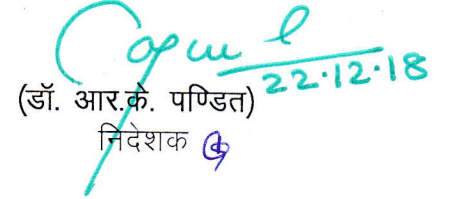 22.12.18
(डॉ. आर.के. पण्डित)
निदेशक